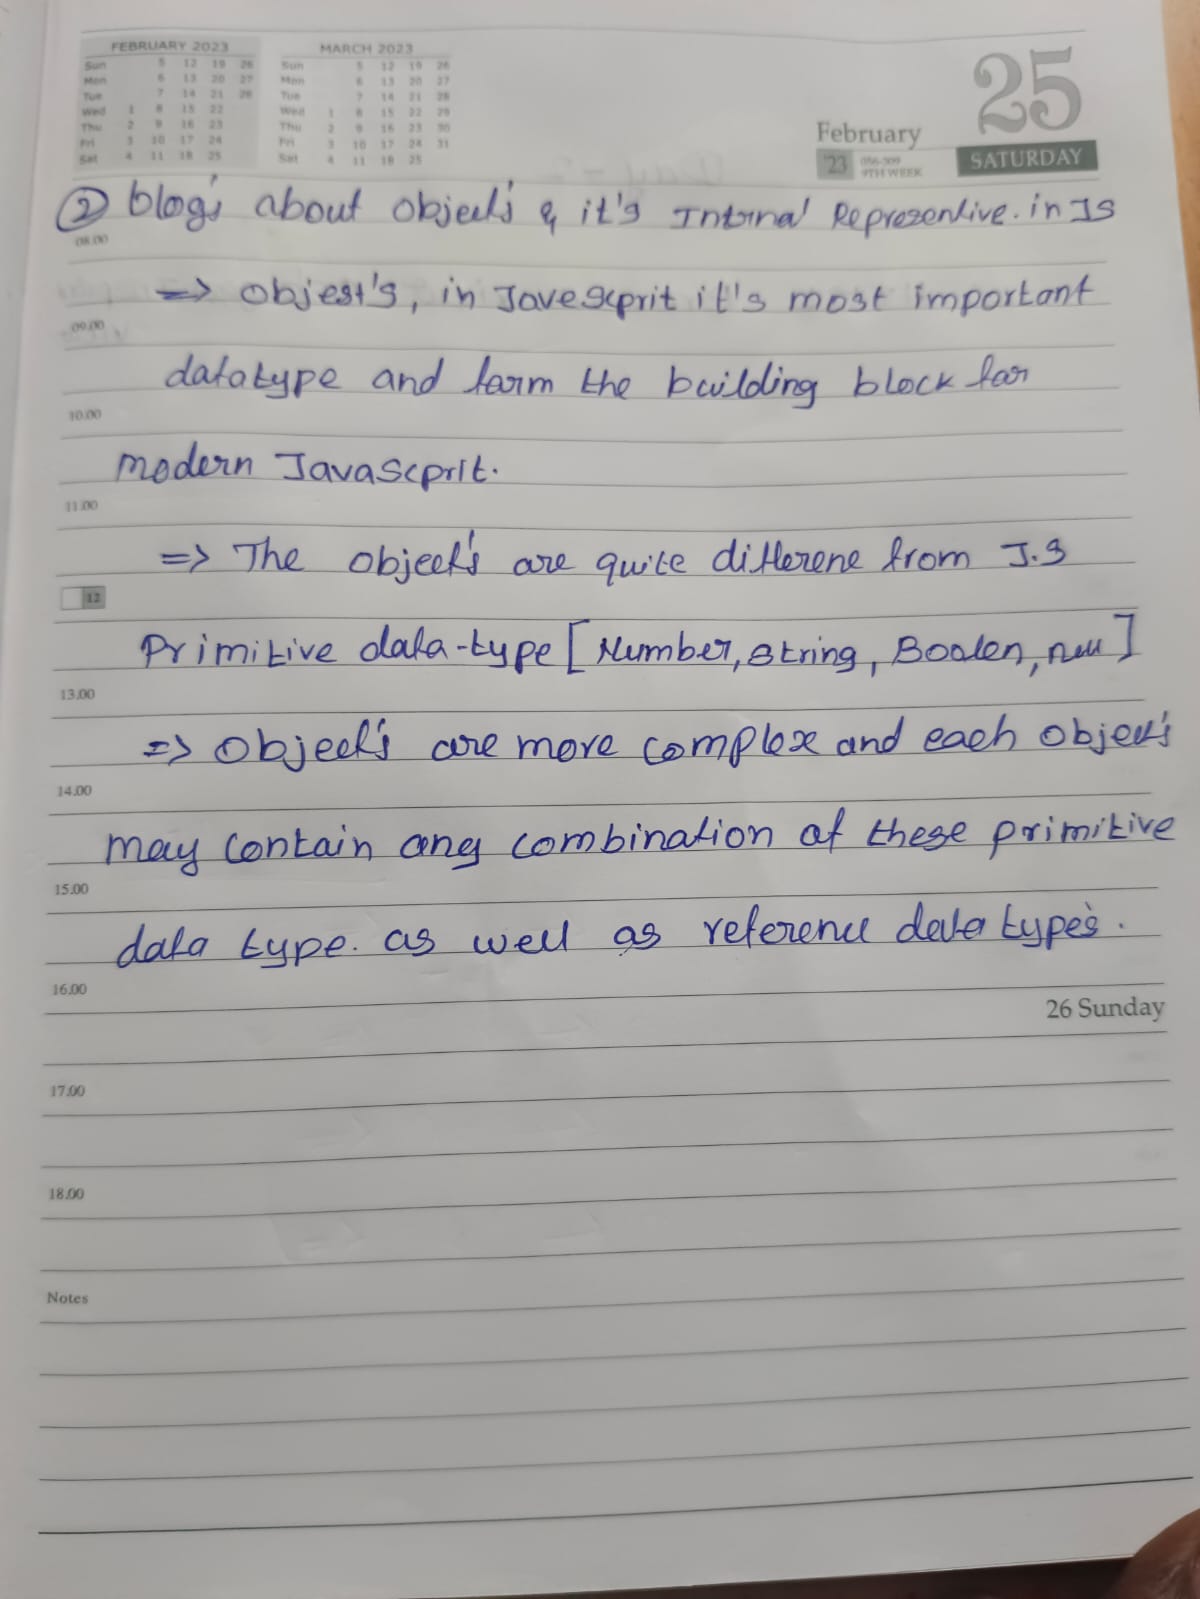 FEBRUARY 2023
Sun 5 12 19 26
Mon 6 13 20 27
Tue 7 14 21 28
Wed 1 8 15 22
Thu 2 9 16 23
Fri 3 10 17 24
Sat 4 11 18 25
MARCH 2023
Sun 5 12 19 26
Mon 6 13 20 27
Tue 7 14 21 28
Wed 1 8 15 22 29
Thu 2 9 16 23 30
Fri 3 10 17 24 31
Sat 4 11 18 25
25
February
'23
9TH WEEK
SATURDAY
② blog's about object's & it's Internal Represenlive. in JS
08.00
=> objest's, in Javescprit it's most important
09.00
datatype and farm the building block for
10.00
modern Javascprit.
11.00
=> The object's are quite differene from J.S
12
Primitive data-type [Number, string, Boolen, null]
13.00
=> object's are more complex and each object's
14.00
may contain any combination of these primitive
15.00
data type. as well as reference data type's.
16.00
26 Sunday
17.00
18.00
Notes